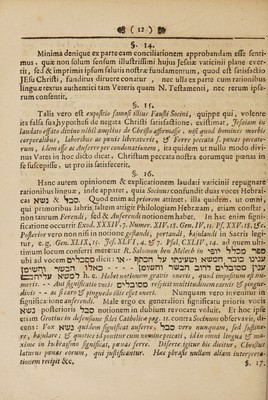 ( 12 )
§. 14.
Minima denique ex parte eam conciliationem approbandam esse senti-
mus, quæ non solum sensum illustrissimi hujus Jesaiæ vaticinii plane ever-
tit, sed & imprimis ipsum salutis nostræ fundamentum, quod est satisfactio
JEsu Christi, funditus diruere conatur, nec ulla ex parte cum rationibus
linguæ textus authentici tam Veteris quam N. Testamenti, nec rerum ipsa-
rum consentit.
§. 15.
Talis vero est expositio summi illius Fausti Socini, quippe qui, volente
ita falsa sua hypothesi de negata Christi satisfactione, existimat, Jesaiam in
laudato effato divino nihil amplius de Christo affirmasse, nisi quod homines morbis
corporalibus, laboribus ac pœnis liberaverit, & Ferre peccata s. pœnas peccato-
rum, idem esse ac Auferre per condonationem, ita quidem ut nullo modo divi-
nus Vates in hoc dicto dicat, Christum peccata nostra eorumque pœnas in
se suscepisse, ut pro iis satisfecerit.
§. 16.
Hanc autem opinionem & explicationem laudati vaticinii repugnare
rationibus linguæ, inde apparet, quia Socinus confundit duas voces Hebrai-
cas נשא & סבל. Quod enim ad priorem attinet, illa quidem, ut omni,
qui primoribus labris saltem attigit Philologiam Hebræam, etiam constat,
non tantum Ferendi, sed & Auferendi notionem habet. In hac enim signi-
ficatione occurrit Exod. XXXIII, 7. Numer. XIV, 18. Gen. IV, 13. Pf. XXV, 18. &c.
Posterior vero non nisi notione preferendi, portandi, bajulandi in Sacris legi-
tur, e, g, Gen. XLIX, 15. Jes. XLVI, 4. & 7. Psal. CXLIV, 14. ad quem ul-
timum locum conferri meretur R. Salomon ben Melech in
ubi ad vocem מסבלים dicit:
h. e. Habet notionem gravis oneris, quod impositum est hu-
meris. - - Aut significatio vocis מסובלים recipit multitudinem carnis & pingue-
dinis - - ac si carnis & pinguedinis illis esset oneri. Nunquam vero invenitur in
significatione auferendi. Male ergo ex generaliori significatu prioris vocis
נשא posterioris סבל notionem in dubium revocare voluit. Et hoc ipse
etiam Grotius in defensione fidei Catholicæ pag. 11. contra Socinum observavit, di-
cens: Vox נשא quidem significat auferre, סבל vero nunquam, sed sustine-
re, bajulare; & quoties id ponitur cum nomine peccati, idin omni lingua & ma-
xime in Hebraismo significat, pœnas ferre. Diserte igitur hic dicitur, Christus
laturus pœnas eorum, qui justificantur. Hæc phrasis nullam aliam interpreta-
tionem recipit &c,
§. 17.